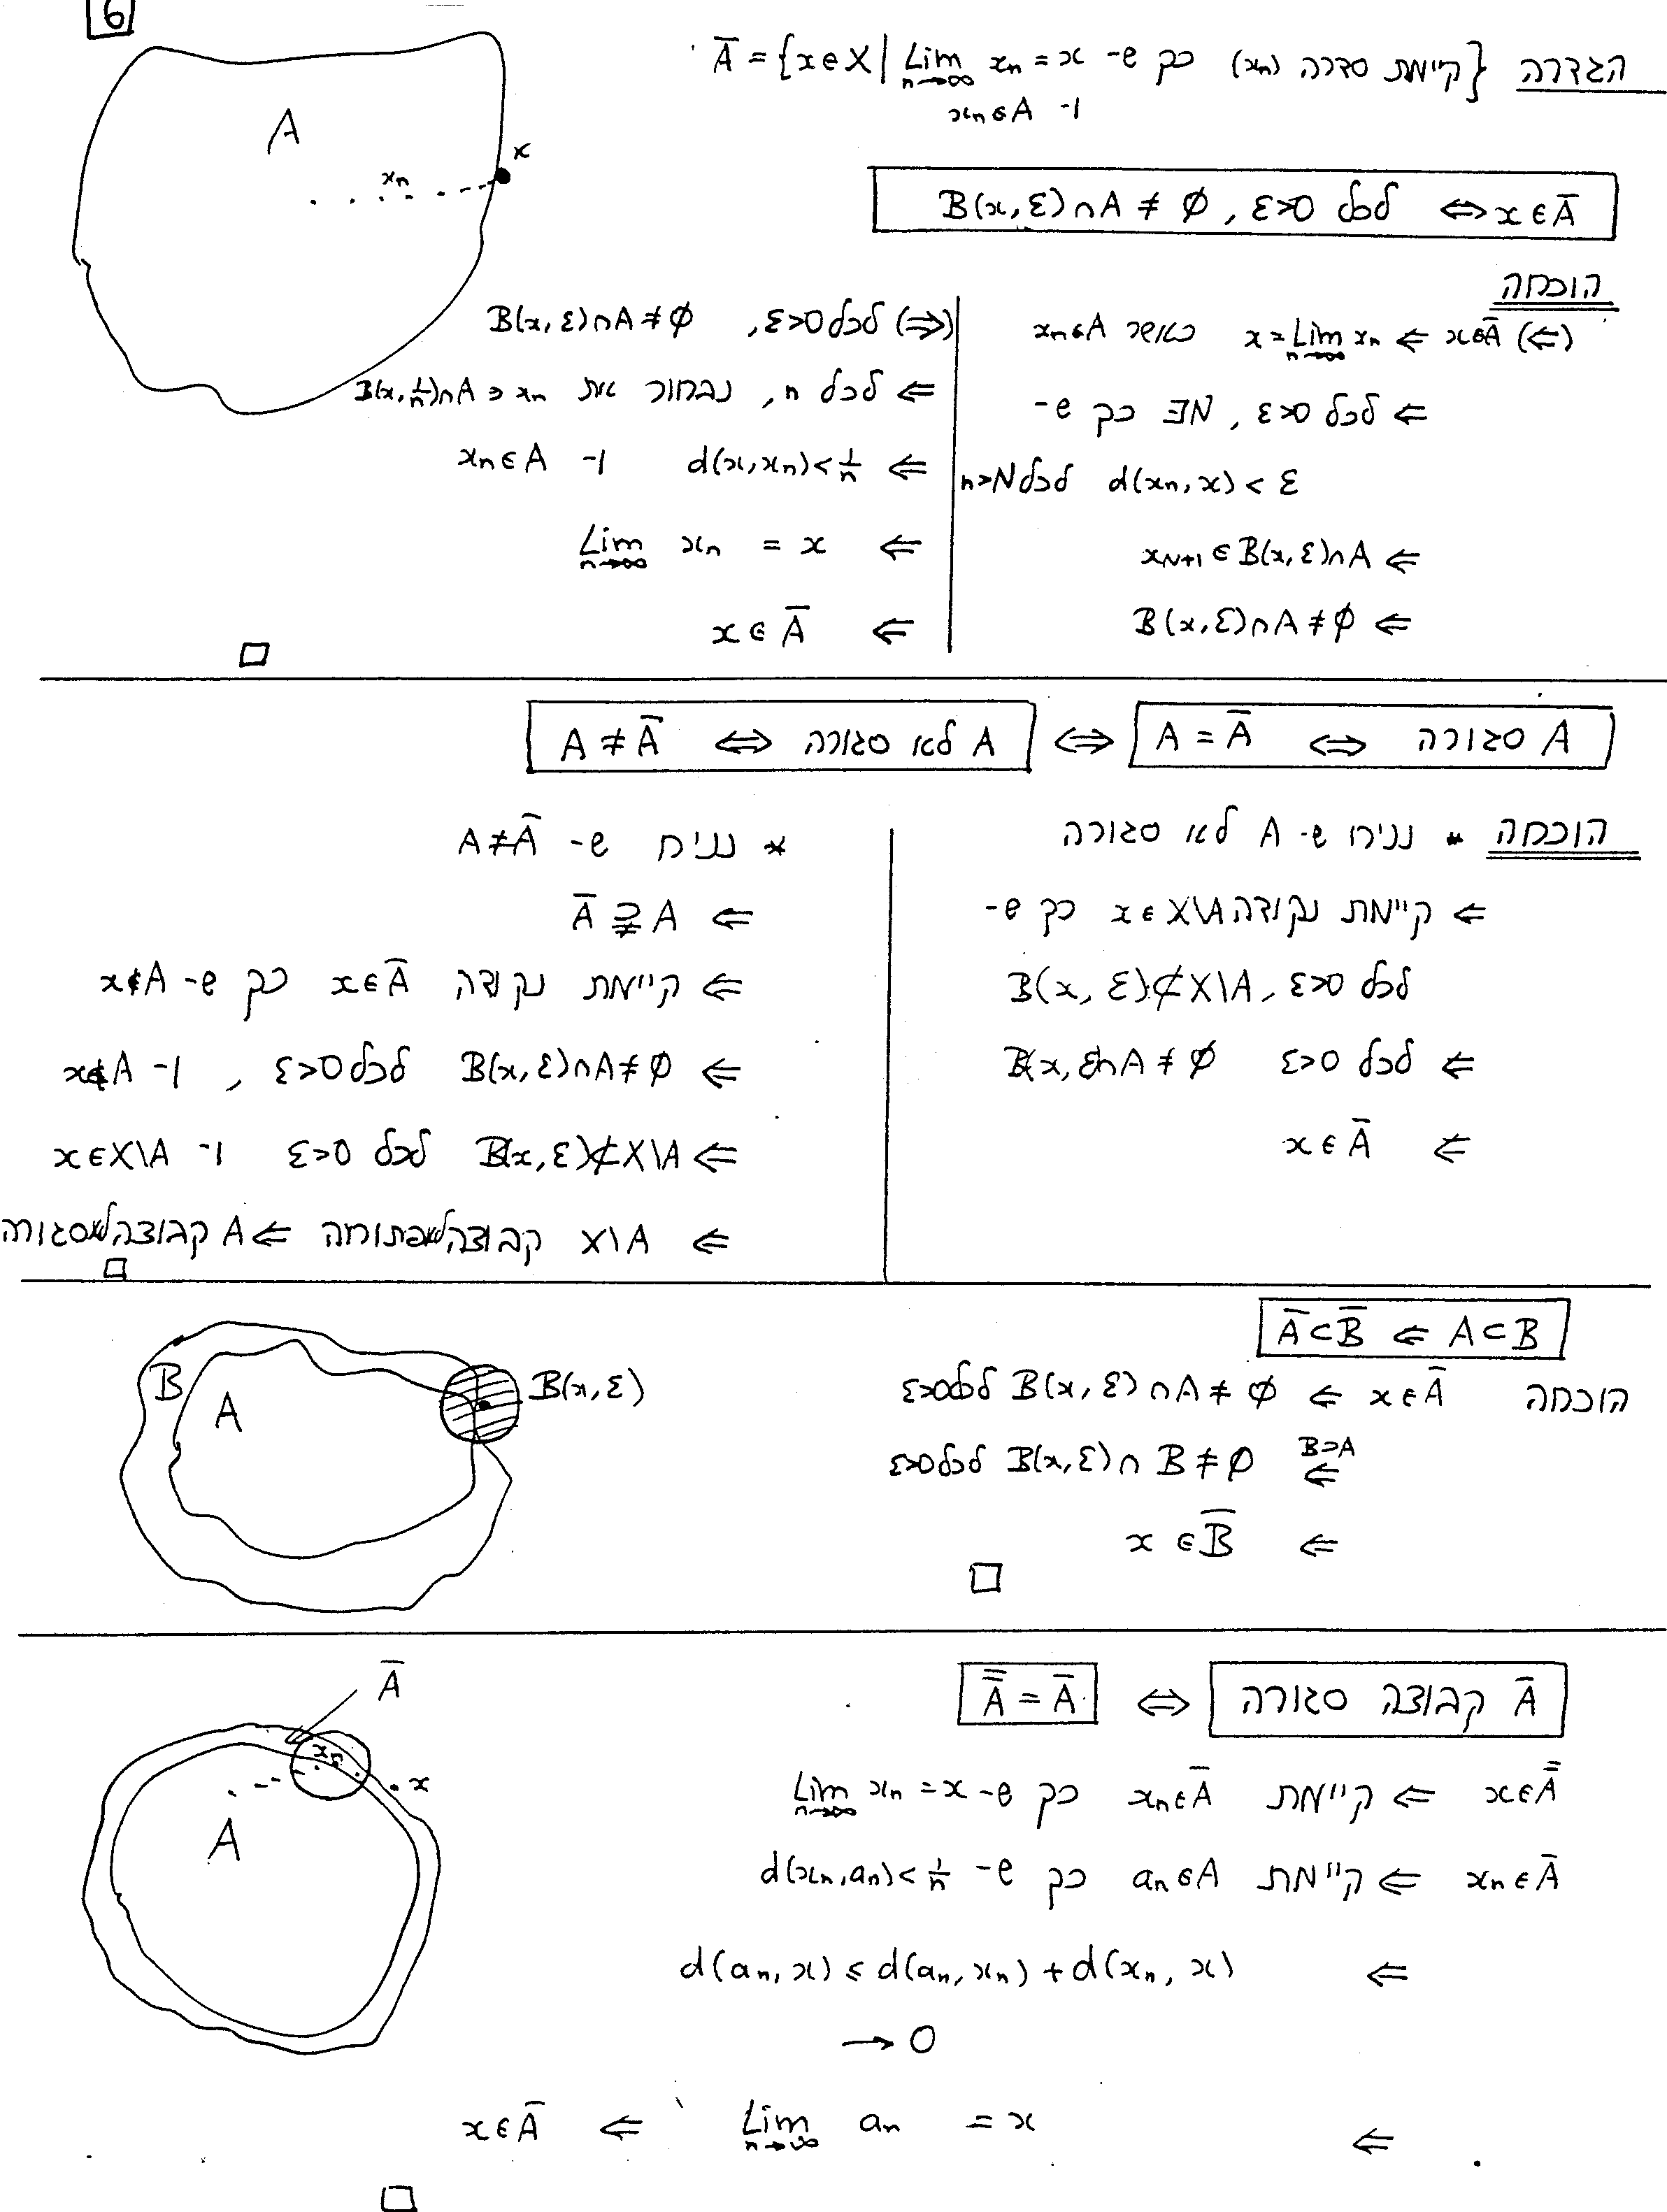 6
הגדרה $\bar{A} = \{x \in X \mid \lim_{n\to\infty} x_n = x$ קיימת סדרה $(x_n)$ כך ש- $\}$
ו- $x_n \in A$
A
$x_n$
x
$x \in \bar{A} \Leftrightarrow$ לכל $\varepsilon > 0$, $B(x, \varepsilon) \cap A \neq \phi$
הוכחה
(⇐) $x \in \bar{A}$ ⇐ $x = \lim_{n\to\infty} x_n$ כאשר $x_n \in A$
⇐ לכל $\varepsilon > 0$, $\exists N$ כך ש-
$d(x_n, x) < \varepsilon$ לכל $n > N$
⇐ $x_{N+1} \in B(x, \varepsilon) \cap A$
⇐ $B(x, \varepsilon) \cap A \neq \phi$
(⇒) לכל $\varepsilon > 0$, $B(x, \varepsilon) \cap A \neq \phi$
⇐ לכל n, נבחור את $x_n \in B(x, \frac{1}{n}) \cap A$
⇐ $d(x, x_n) < \frac{1}{n}$ ו- $x_n \in A$
⇐ $\lim_{n\to\infty} x_n = x$
⇐ $x \in \bar{A}$
□
A סגורה ⇔ $A = \bar{A}$ ⇔ A לא סגורה ⇔ $A \neq \bar{A}$
הוכחה * נניח ש- A לא סגורה
⇐ קיימת נקודה $x \in X \setminus A$ כך ש-
לכל $\varepsilon > 0$, $B(x, \varepsilon) \not\subset X \setminus A$
⇐ לכל $\varepsilon > 0$ $B(x, \varepsilon) \cap A \neq \phi$
⇐ $x \in \bar{A}$
* נניח ש- $A \neq \bar{A}$
⇐ $\bar{A} \supsetneq A$
⇐ קיימת נקודה $x \in \bar{A}$ כך ש- $x \notin A$
⇐ $B(x, \varepsilon) \cap A \neq \phi$ לכל $\varepsilon > 0$, ו- $x \notin A$
⇐ $B(x, \varepsilon) \not\subset X \setminus A$ לכל $\varepsilon > 0$ ו- $x \in X \setminus A$
⇐ $X \setminus A$ קבוצה לא פתוחה ⇐ A קבוצה לא סגורה
□
$A \subset B$ ⇐ $\bar{A} \subset \bar{B}$
הוכחה $x \in \bar{A}$ ⇐ $B(x, \varepsilon) \cap A \neq \phi$ לכל $\varepsilon > 0$
$B \supset A$
⇐ $B(x, \varepsilon) \cap B \neq \phi$ לכל $\varepsilon > 0$
⇐ $x \in \bar{B}$
□
B
A
$B(x, \varepsilon)$
$\bar{A}$ קבוצה סגורה ⇔ $\bar{\bar{A}} = \bar{A}$
$x \in \bar{\bar{A}}$ ⇐ קיימת $x_n \in \bar{A}$ כך ש- $\lim_{n\to\infty} x_n = x$
$x_n \in \bar{A}$ ⇐ קיימת $a_n \in A$ כך ש- $d(x_n, a_n) < \frac{1}{n}$
⇐ $d(a_n, x) \leq d(a_n, x_n) + d(x_n, x)$
→ 0
⇐ $\lim_{n\to\infty} a_n = x$ ⇐ $x \in \bar{A}$
□
$\bar{A}$
$x_n$
x
A